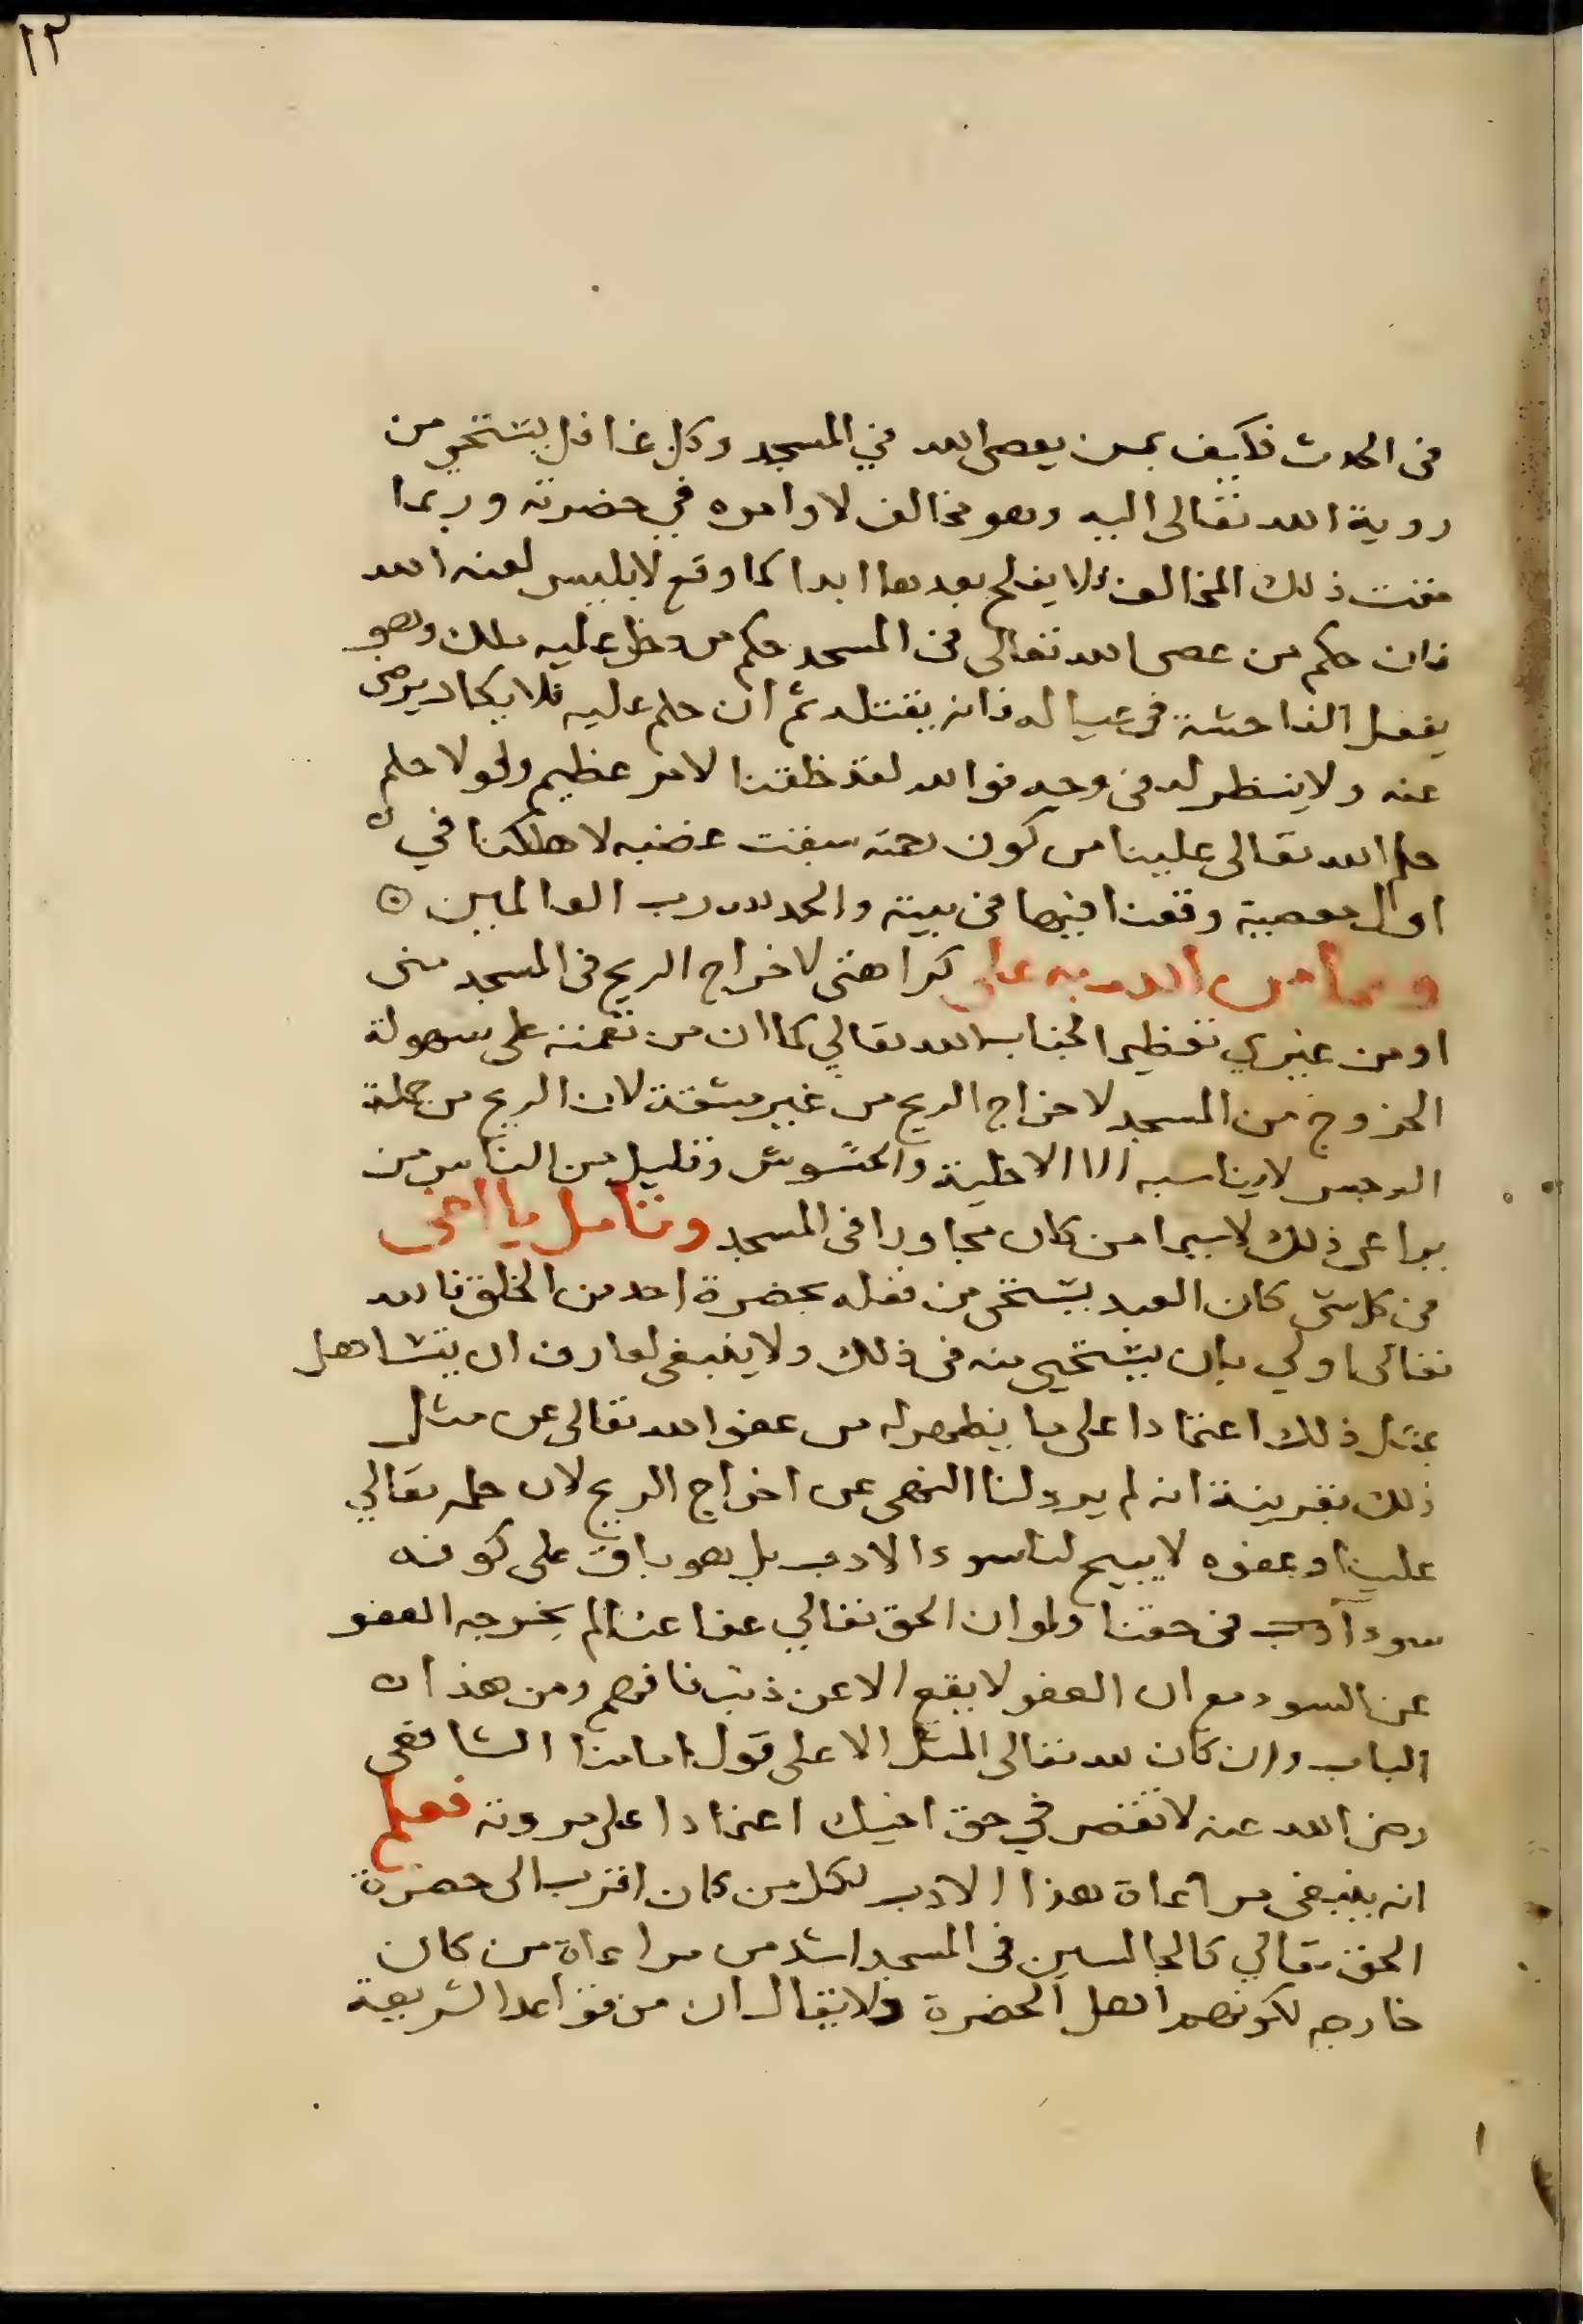 ١٢
في الحدث فكيف بمن يعصى الله في المسجد وكل عاقل يستحي من
روية الله تعالى اليه وهو مخالف لاوامره في حضرته وربما
مقت ذلك المخالف فلا يفلح بعدها ابدا كما وقع لابليس لعنه الله
فان حكم من عصى الله تعالى في المسجد حكم من دخل عليه ملك وهو
يفعل الفاحشة في عياله فانه يقتله ثم ان حلم عليه فلا يكاد يرضى
عنه ولا ينظر له في وجه فوالله لقد خلقنا لامر عظيم ولولا حلم
حلم الله تعالى علينا من كون رحمته سبقت غضبه لاهلكنا في
اول معصية وقعنا فيها في بيته والحمد لله رب العالمين
ومما من الله به على كراهتي لاخراج الريح في المسجد مني
او من غيري تعظيما لجناب الله تعالى كما ان من نعمته على سهولة
الخروج من المسجد لاخراج الريح من غير مشقة لان الريح من جملة
الرجس لا يناسبه الا الاخلية والحشوش وقليل من الناس من
يراعى ذلك لاسيما من كان مجاورا في المسجد وتامل يا اخى
في كل شي كان العبد يستحى من فعله بحضرة احد من الخلق فالله
تعالى اولي بان يستحيى منه في ذلك ولا ينبغى لعارف ان يتساهل
بمثل ذلك اعتمادا على ما يظهر له من عفو الله تعالى عن مثل
ذلك بقرينة انه لم يرد لنا النهى عن اخراج الريح لان حلمه تعالى
علينا وعفوه لا يبيح لنا سوء الادب بل هو باق على كونه
سوء ادب في حقنا ولو ان الحق تعالى عفا عنا لم يخرجه العفو
عن السوء مع ان العفو لا يقع الا عن ذنب فافهم ومن هذا
الباب وان كان لله تعالى المثل الاعلى قول امامنا الشافعى
رضى الله عنه لا تقصر في حق اخيك اعتمادا على مروته فعلم
انه ينبغى مراعاة هذا الادب لكل من كان اقرب الى حضرة
الحق تعالى كالجالسين في المسجد اشد من مراعاة من كان
خارجه لكونهم اهل الحضرة ولا يقال ان من قواعد الشريعة